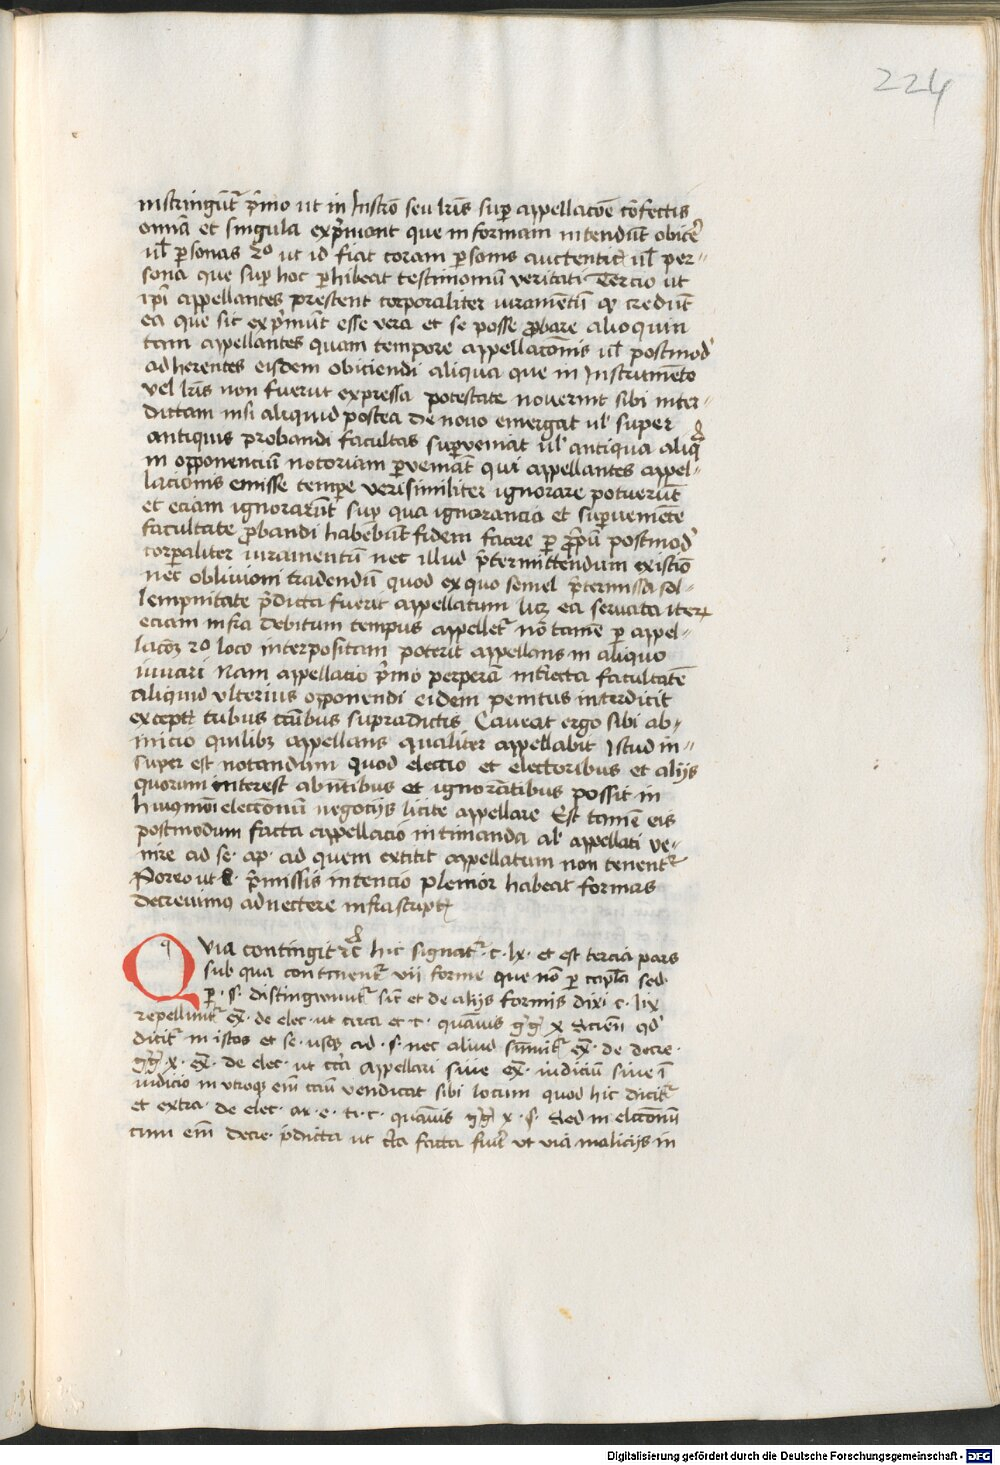 224
instringūt p̄mo ut in Instrō seu lr̄is sup appellacōe cōfectis
om̄ia et singula exp̄mant que in formam intendūt obicē
ul̄ psonas 2o ut id fiat coram psonis auctenticis ul̄ per-
sona que sup hoc phibeat testimoniū veritati Tercio ut
ip̄i appellantes prestent corporaliter iuramentū qꝫ credūt
ea que sic exp̄munt esse vera et se posse pbare alioquin
tam appellantes quam tempore appellacōnis ul̄ postmod
adherentes eisdem obiciendi aliqua que in Instrumēto
vel lr̄is non fuerūt expressa potestate noverint sibi inter-
dictam nisi aliquid postea de novo emergat ul super
antiquis probandi facultas supveniat ul antiqua aliq̄
in opponenciū notoriam pveniāt qui appellantes appel-
lacionis emisse tempe verisimiliter ignorare potuerūt
et eciam ignorarūt sup qua ignorancia et supveniēte
facultate pbandi habēbūt fidem facere p ppū postmod
corpaliter iuramentū nec illud p̄termittendum existiō
nec oblivioni tradendū quod ex quo semel p̄termissa sol-
lempnitate p̄dicta fuerit appellatum licꝫ ea servata iterꝫ
eciam infra debitum tempus appellet nō tamē p appel-
lacōꝫ 2o loco interpositam poterit appellans in aliquo
iuvari Nam appellatio p̄mo perperā iniecta facultatē
aliquid ulterius opponendi eidem penitus interdicit
exceptꝭ tribus casibus supradictis Caveat ergo sibi ab-
inicio quilibꝫ appellans qualiter appellabit Istud in-
super est notandum quod electio et electoribus et alijs
quorum interest absn̄tibus et ignorātibus possit in
huiꝰmōi eleccionū negocijs licite appellare Est tamē eis
postmodum facta appellacio intimanda al appellati ve-
nire ad se· ap· ad quem extitit appellatum non tenent
Porro ut ex p̄missis intencio plenior habeat formas
decrevimꝰ adnectere infrascriptꝭ
Quia contingit ꝛc̄ hic signat· c· lx· et est tercia pars
sub qua continent vii forme que nō p capl̄a sed·
p· s· distingwunt sic̄ et de alijs formis dixi c· lix
repellunt ex̄· de elec· ut circa et c· quāvis gͥgͥ x Sciēn qd
dicit in istos et se· usqꝫ ad· s· nec aliud sūmit ex̄· de decre·
gͥgͥ x· ex̄· de elec· ut cīca appellari sive ex̄· iudiciū sive ī
iudicio in utroqꝫ eī casū vendicat sibi locum quod hic dicit
et extra· de elec· ar· e· ti· c· quāvis gͥgͥ x· s· Sed in elcōnū
cum eī decre· p̄dicta ut cīca facta fuit ut via malicijs in
Digitalisierung gefördert durch die Deutsche Forschungsgemeinschaft - DFG